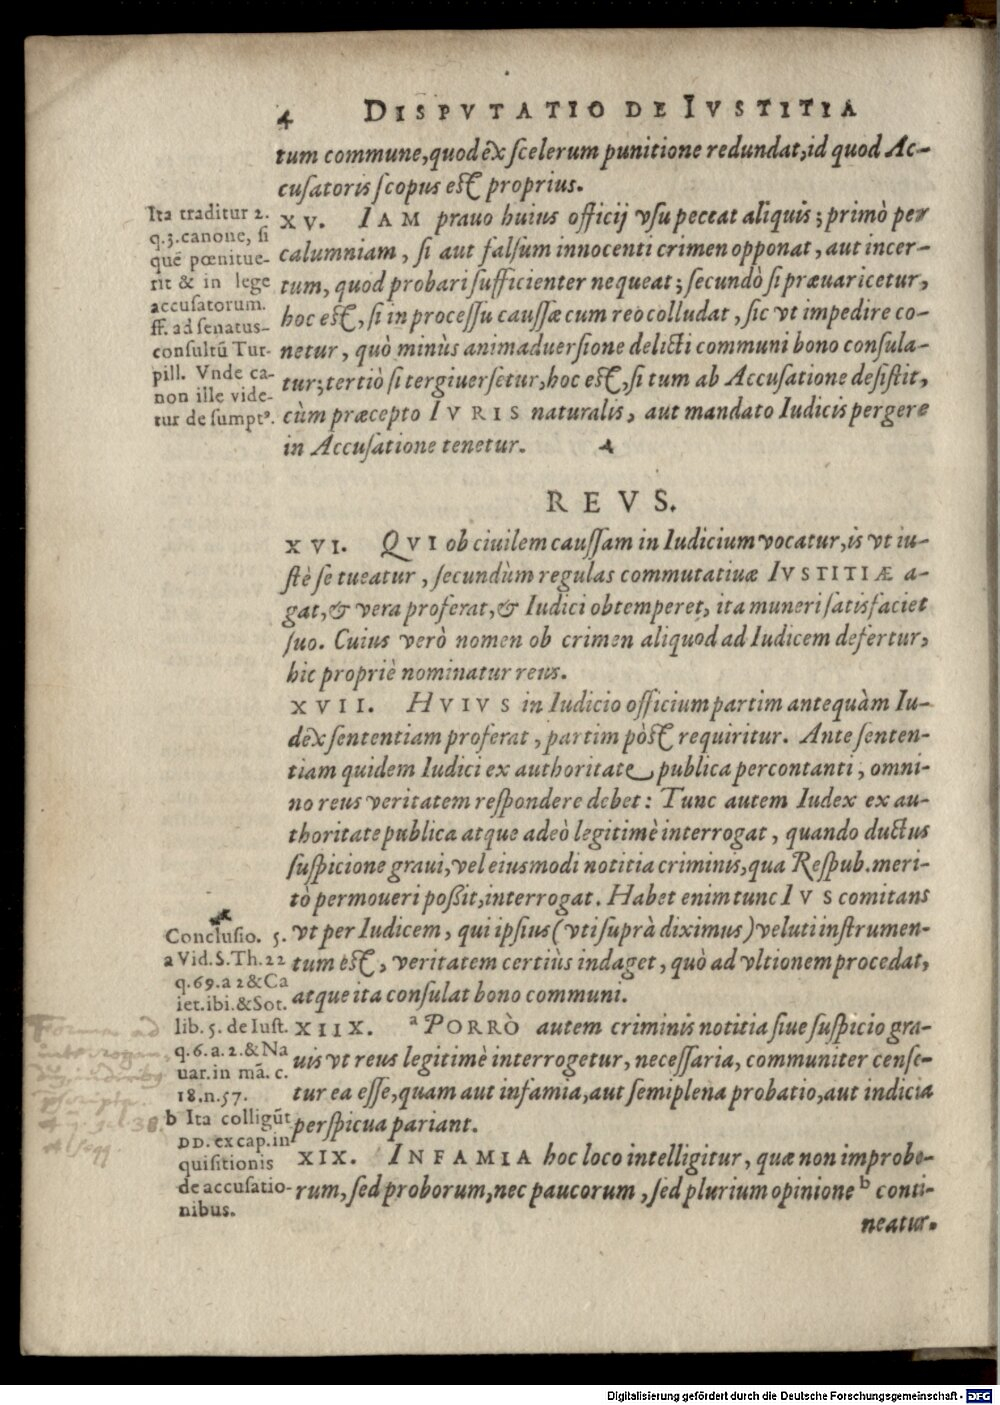 4 DISPVTATIO DE IVSTITIA
tum commune, quod ex scelerum punitione redundat, id quod Ac-
cusatoris scopus est proprius.
XV. IAM prauo huius officij vsu peccat aliquis; primò per
calumniam, si aut falsum innocenti crimen opponat, aut incer-
tum, quod probari sufficienter nequeat; secundò si præuaricetur,
hoc est, si in processu caussæ cum reo colludat, sic vt impedire co-
netur, quò minùs animaduersione delicti communi bono consula-
tur; tertiò si tergiuersetur, hoc est, si tum ab Accusatione desistit,
cùm præcepto IVRIS naturalis, aut mandato Iudicis pergere
in Accusatione tenetur.
Ita traditur 2.
q.3.canone, si
quē pœnitue-
rit & in lege
accusatorum.
ff. ad senatus-
consultū Tur-
pill. Vnde ca-
non ille vide-
tur desumptꝰ.
REVS.
XVI. QVI ob ciuilem caussam in Iudicium vocatur, is vt iu-
stè se tueatur, secundùm regulas commutatiuæ IVSTITIÆ a-
gat, & vera proferat, & Iudici obtemperet, ita muneri satisfaciet
suo. Cuius verò nomen ob crimen aliquod ad Iudicem defertur,
hic propriè nominatur reus.
XVII. HVIVS in Iudicio officium partim antequàm Iu-
dex sententiam proferat, partim pòst requiritur. Ante senten-
tiam quidem Iudici ex authoritate publica percontanti, omni-
no reus veritatem respondere debet: Tunc autem Iudex ex au-
thoritate publica atque adeò legitimè interrogat, quando ductus
suspicione graui, vel eiusmodi notitia criminis, qua Respub. meri-
tò permoueri poßit, interrogat. Habet enim tunc IVS comitans
vt per Iudicem, qui ipsius (vti suprà diximus) veluti instrumen-
tum est, veritatem certiùs indaget, quò ad vltionem procedat,
atque ita consulat bono communi.
XIIX. a PORRÒ autem criminis notitia siue suspicio gra-
uis vt reus legitimè interrogetur, necessaria, communiter cense-
tur ea esse, quam aut infamia, aut semiplena probatio, aut indicia
perspicua pariant.
XIX. INFAMIA hoc loco intelligitur, quæ non improbo-
rum, sed proborum, nec paucorum, sed plurium opinione b conti-
neatur.
Conclusio. 5.
a Vid. S. Th. 22
q.69.a 2 & Ca
iet.ibi.& Sot.
lib. 5. de Iust.
q.6.a.2.& Na
uar.in mā. c.
18.n.57.
b Ita colligūt
DD. ex cap.in
quisitionis
de accusatio-
nibus.
Digitalisierung gefördert durch die Deutsche Forschungsgemeinschaft - DFG